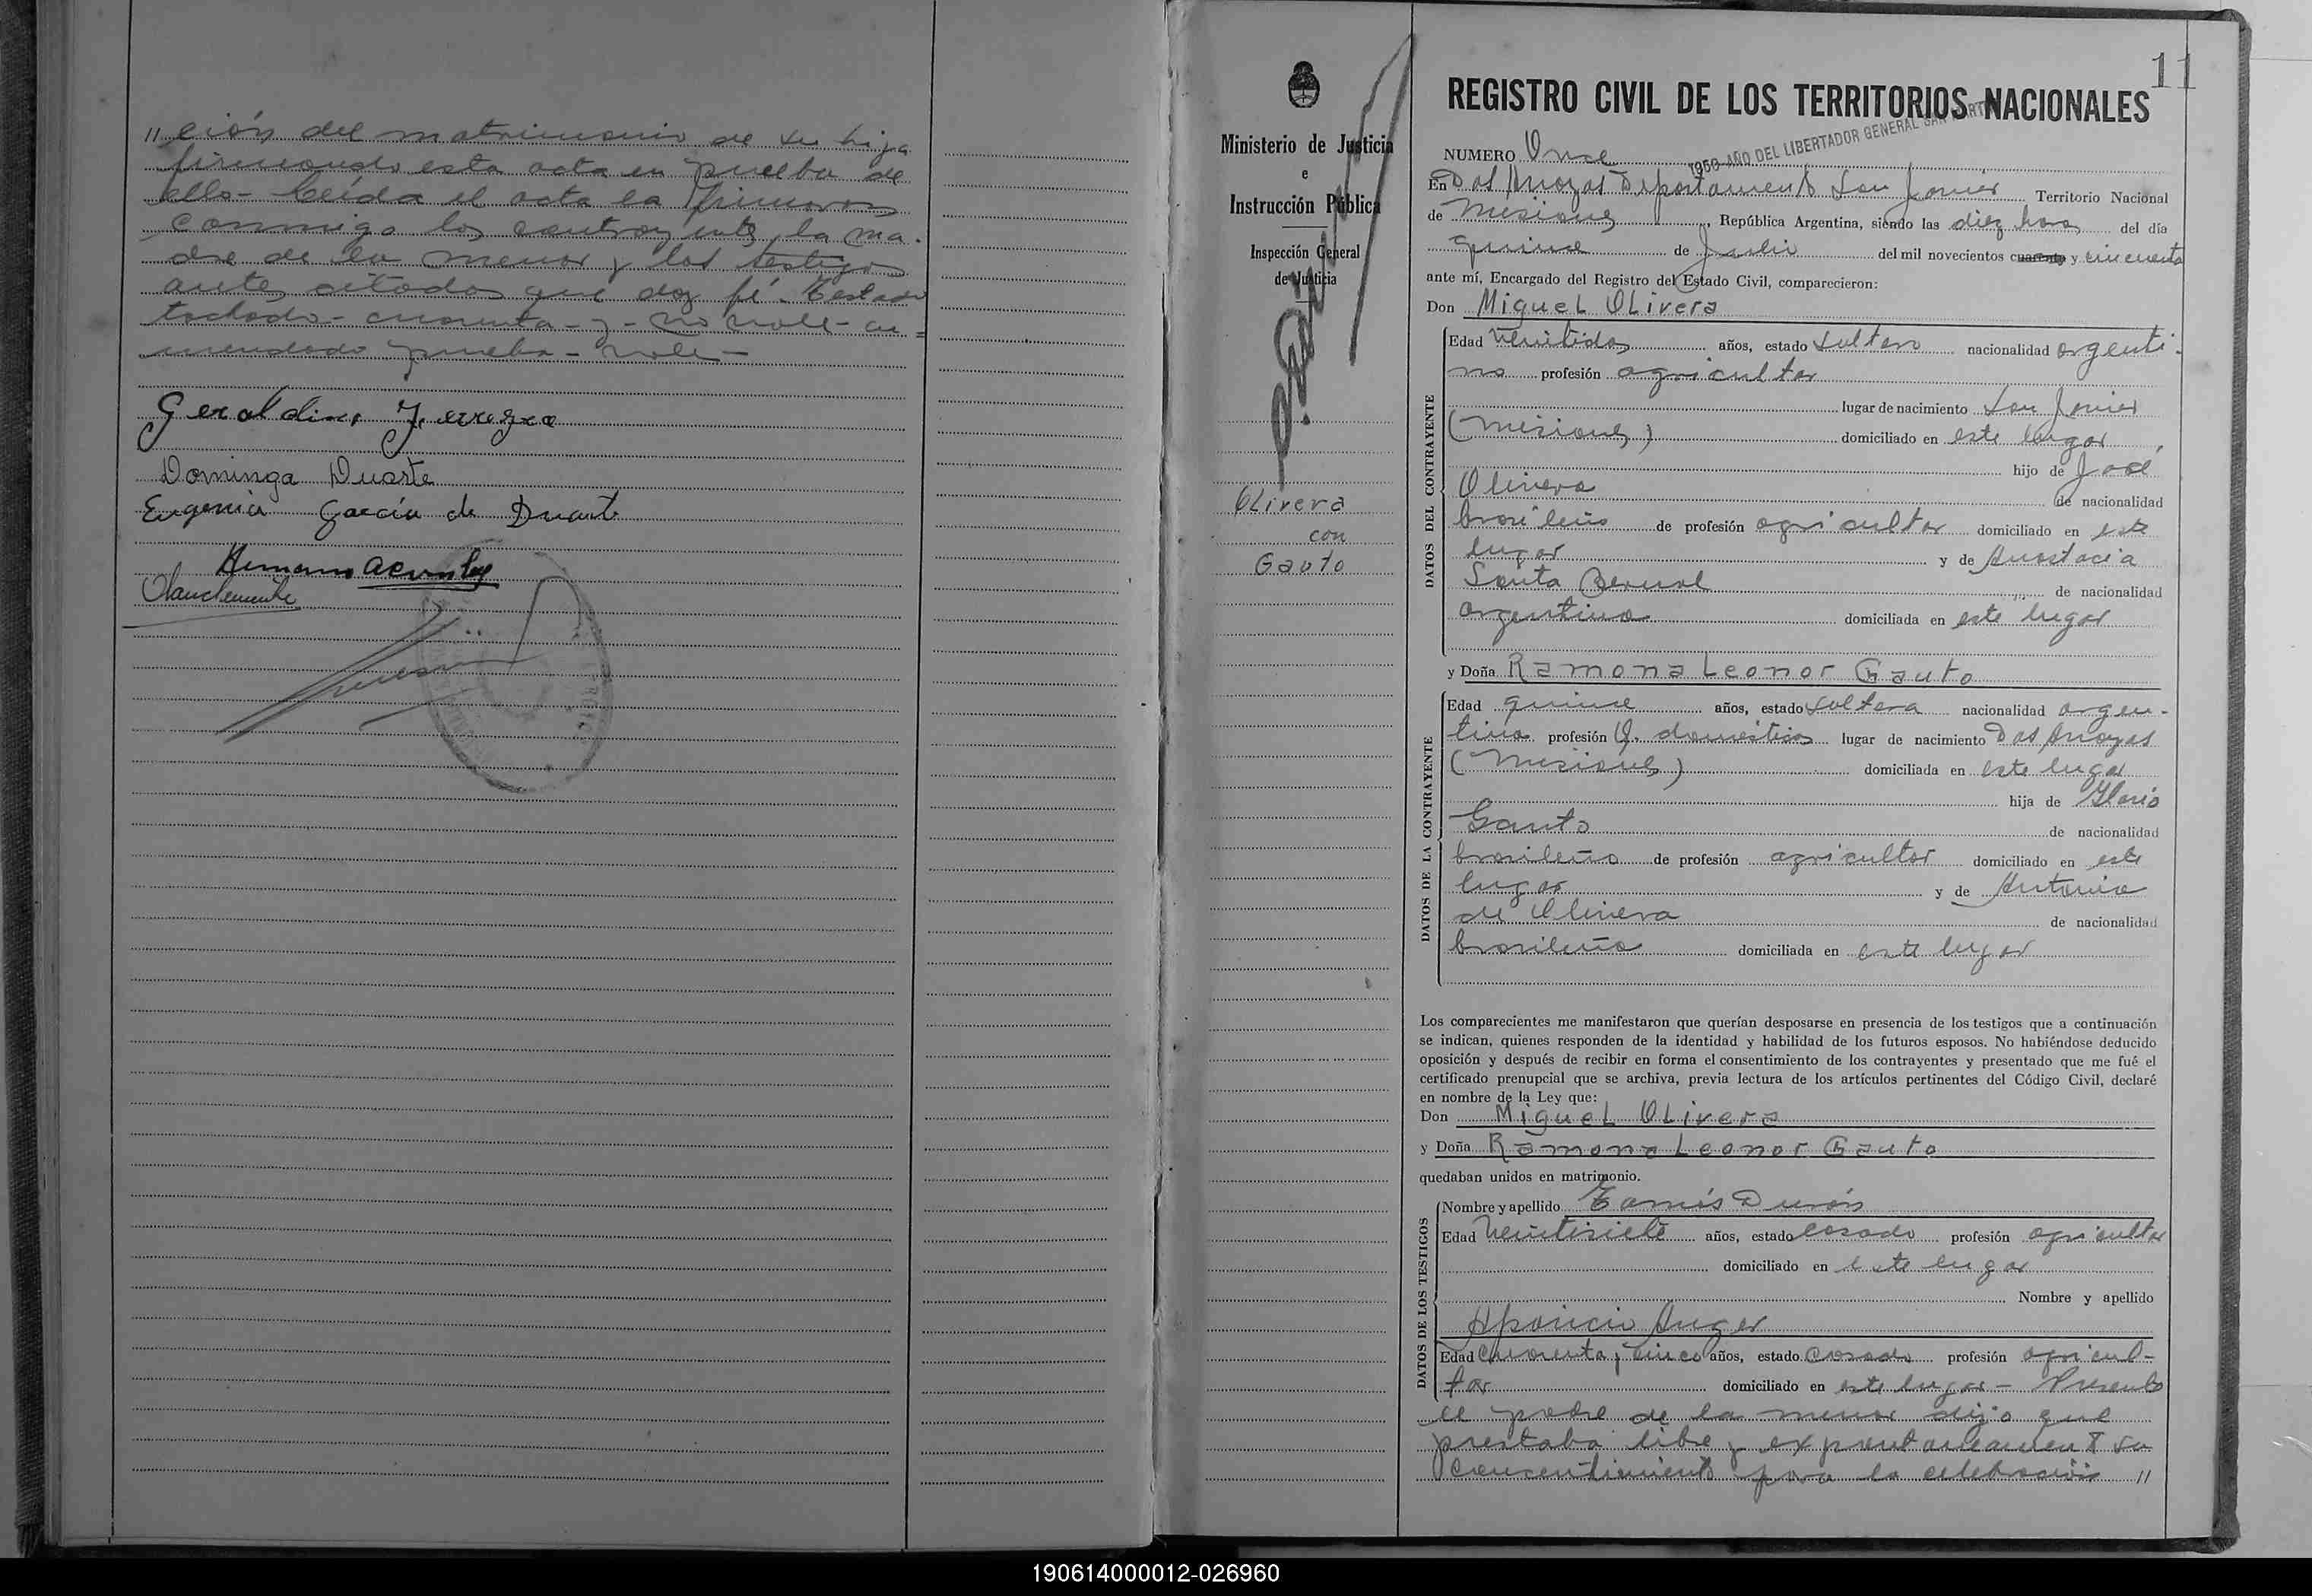 "ción del matrimonio de su hija
firmando esta acta en prueba de
ello- Leída el acta la firmaron
conmigo los contrayentes, la ma-
dre de la menor y los testigos
antes citados que doy fé- Testado
tachado- cuarenta- y- no vale- en=
mendado prueba- vale-
Geraldino Ferreyra
Dominga Duarte
Eugenia García de Duarte
11
Ministerio de Justicia
e
Instrucción Pública
Inspección General
de Justicia
Olivera
con
Gauto
REGISTRO CIVIL DE LOS TERRITORIOS NACIONALES
1950-AÑO DEL LIBERTADOR GENERAL SAN MARTIN
NUMERO Once
En Dos Arroyos Departamento San Javier Territorio Nacional
de Misiones, República Argentina, siendo las diez horas del día
quince de Julio del mil novecientos cuarenta y cincuenta
ante mí, Encargado del Registro del Estado Civil, comparecieron:
Don Miguel Olivera
DATOS DEL CONTRAYENTE
Edad veintidos años, estado soltero nacionalidad argenti-
no profesión agricultor
lugar de nacimiento San Javier
(Misiones) domiciliado en este lugar
hijo de José
Olivera de nacionalidad
brasileño de profesión agricultor domiciliado en este
lugar y de Anastacia
de nacionalidad
argentina domiciliada en este lugar
y Doña Ramona Leonor Gauto
DATOS DE LA CONTRAYENTE
Edad quince años, estado soltera nacionalidad argen-
tina profesión Q. domésticos lugar de nacimiento Dos Arroyos
(Misiones) domiciliada en este lugar
hija de Ilario
Gauto de nacionalidad
brasileño de profesión agricultor domiciliado en este
lugar y de Antonia
de Olivera de nacionalidad
brasileña domiciliada en este lugar
Los comparecientes me manifestaron que querían desposarse en presencia de los testigos que a continuación
se indican, quienes responden de la identidad y habilidad de los futuros esposos. No habiéndose deducido
oposición y después de recibir en forma el consentimiento de los contrayentes y presentado que me fué el
certificado prenupcial que se archiva, previa lectura de los artículos pertinentes del Código Civil, declaré
en nombre de la Ley que:
Don Miguel Olivera
y Doña Ramona Leonor Gauto
quedaban unidos en matrimonio.
DATOS DE LOS TESTIGOS
Nombre y apellido Tomás Durán
Edad veintisiete años, estado casado profesión agricultor
domiciliado en este lugar
Nombre y apellido
Aparicio Anger
Edad cuarenta y cinco años, estado casado profesión agricul-
tor domiciliado en este lugar- Presente
el padre de la menor dijo que
prestaba libre y expontaneamente su
concentimiento para la celebración "
190614000012-026960